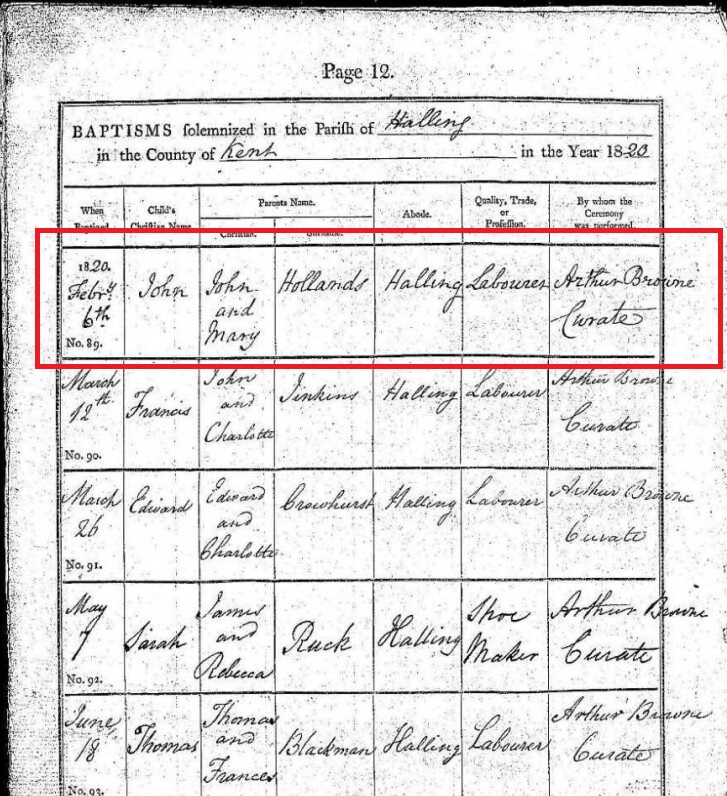 Page 12.
BAPTISMS solemnized in the Parish of Halling
in the County of Kent in the Year 1820
When Child's Parents Name. Abode. Quality, Trade, By whom the
or Ceremony
Baptized. Christian Name. Christian. Surname. Profession. was performed.
1820.
Febry John John Hollands Halling Labourer Arthur Browne
6th and Curate
No. 89. Mary
March John Jinkins Halling Labourer Arthur Browne
12th Francis and Curate
Charlotte
No. 90.
March Edward Edward Crowhurst Halling Labourer Arthur Browne
26 and Curate
Charlotte
No. 91.
May James Shoe Arthur Browne
7 Sarah and Ruck Halling Maker Curate
No. 92. Rebecca
June Thomas Arthur Browne
18 Thomas and Blackman Halling Labourer Curate
Frances
No. 93.